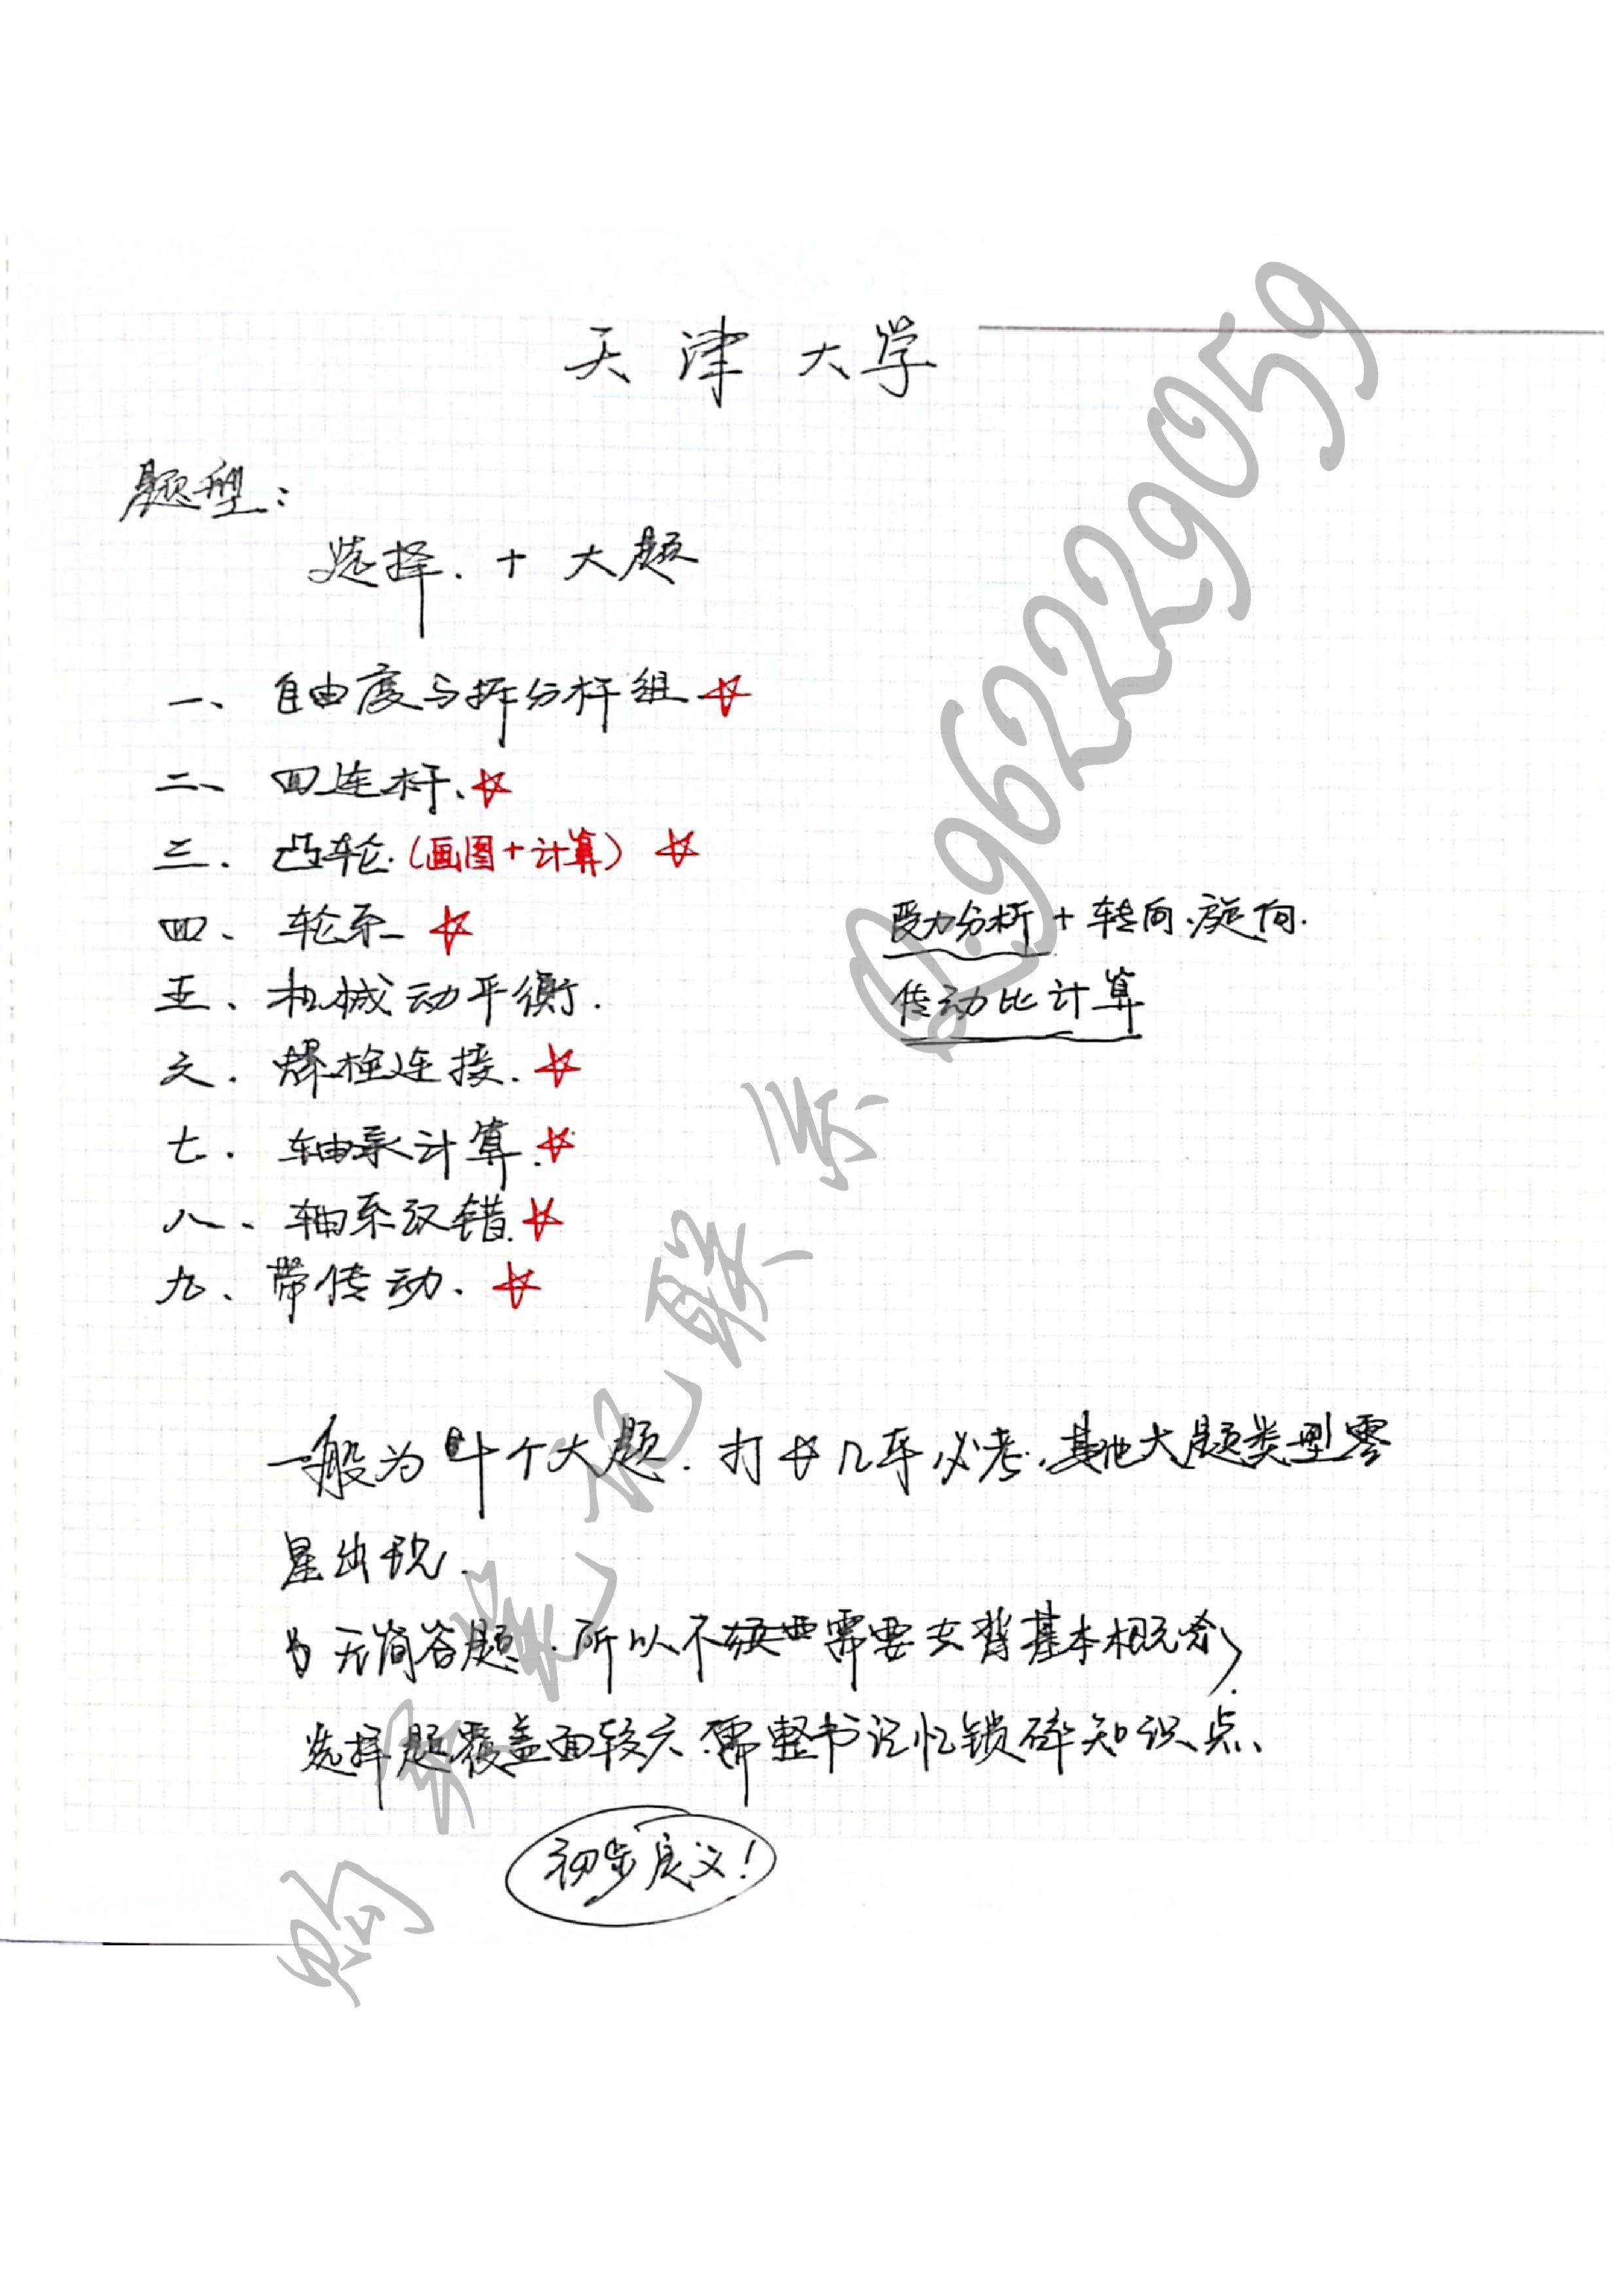 天津大学
题型：
选择. + 大题
一、自由度与拆分杆组 ☆
二、四连杆、☆
三. 凸轮.(画图+计算) ☆
四、轮系 ☆
受力分析 + 转向、旋向.
五、机械动平衡.
传动比计算
六. 螺栓连接. ☆
七. 轴承计算. ☆
八、轴系改错. ☆
九、带传动. ☆
一般为 十个大题. 打☆几乎必考，其他大题类型零
星出现.
无简答题. 所以不 需要去背基本概念，
选择题覆盖面较广.需整书记忆锁碎知识点、
初步定义！
购买笔记联系Q:96222959